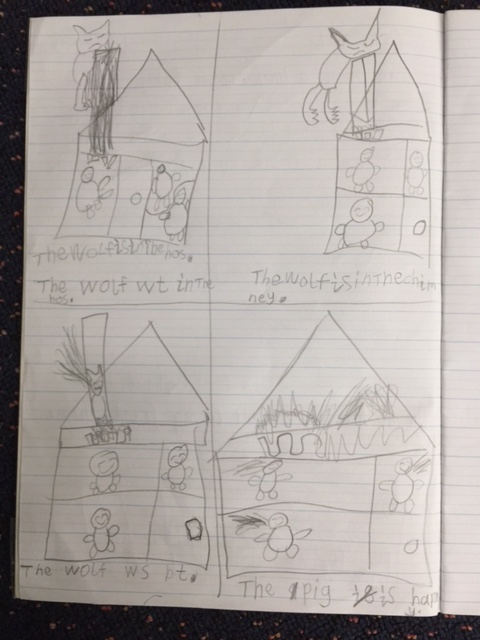 The wolf is in The hos.
The wolf wt in The
hos.
The wolf is in The chim
ney.
The wolf ws pt.
The pig is hap